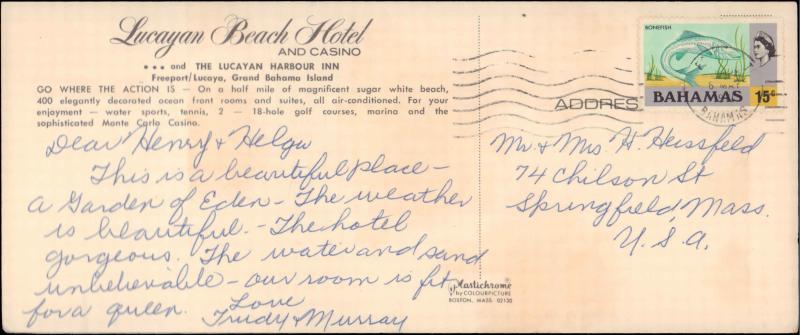 Lucayan Beach Hotel
AND CASINO
••• and THE LUCAYAN HARBOUR INN
Freeport/Lucaya, Grand Bahama Island
GO WHERE THE ACTION IS — On a half mile of magnificent sugar white beach,
400 elegantly decorated ocean front rooms and suites, all air-conditioned. For your
enjoyment — water sports, tennis, 2 — 18-hole golf courses, marina and the
sophisticated Monte Carlo Casino.
Dear Henry & Helga
This is a beautiful place –
a Garden of Eden – The weather
is beautiful. – The hotel
gorgeous. The water and sand
unbelievable – our room is fit
for a queen.
Love
Trudy & Murray
Plastichrome
by COLOURPICTURE
BOSTON, MASS 02130
BONEFISH
BAHAMAS 15c
BAHAMAS
ADDRES
Mr & Mrs H. Heissfeld
74 Chilson St
Springfield, Mass.
U.S.A.